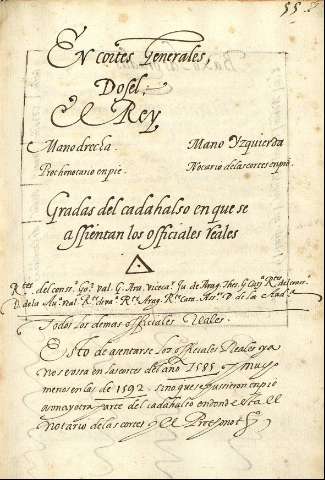 55.
En cortes Generales,
Dosel.
El Rey
Mano drecha. Mano Yzquierda
Prothonotario en pie. Notario de las cortes en pie
Gradas del cadahalso en que se
assientan los officiales reales
R.tes del cons.º Go.r val. G. Ara. Viceca. Ju. de Arag. Thes. G.
D. de la Au.ª real. R.te Ara. R.te Arag. R.te Cata. D. de la
Todos los demas officiales Reales.
Esto de asentarse los officiales Reales ya
no se vsa en las cortes del año 1585. y muy
menos en las de 1592. sino que pusieron en pie
a mayor parte del cadahalso en donde esta el
Notario de las cortes y el Prothonot.º